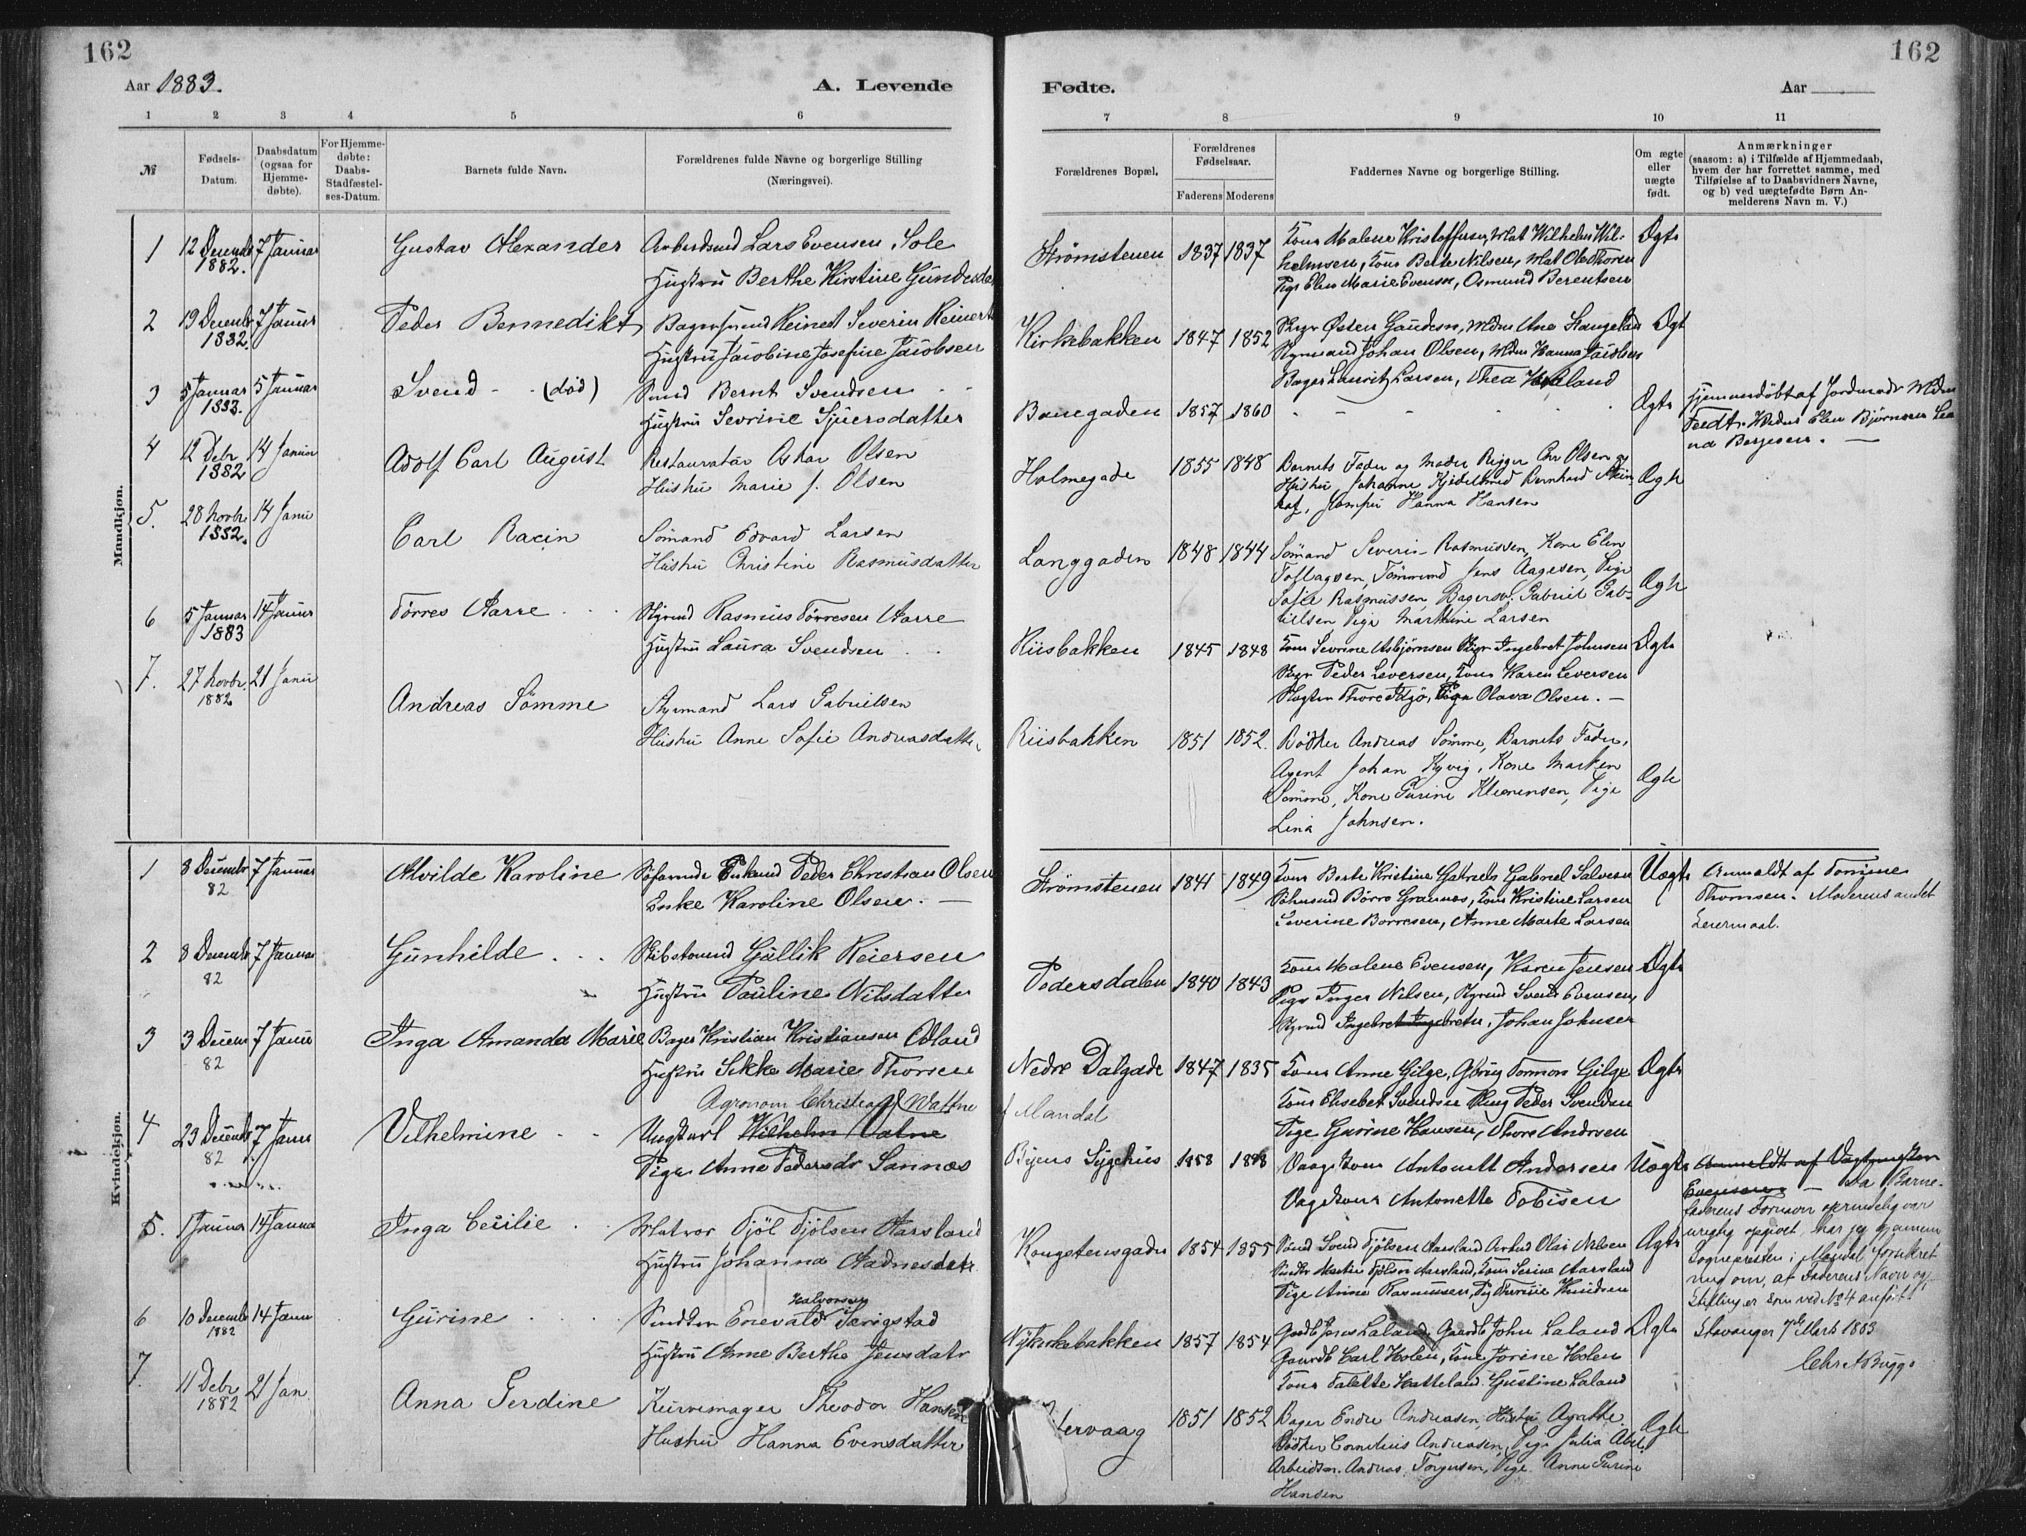 162
162
Aar 1883.
A. Levende
Fødte.
Aar
1 2 3 4 5 6 7 8 9 10 11
№
Fødsels-
Datum.
Daabsdatum
(ogsaa for
Hjemme-
døbte).
For Hjemme-
døbte:
Daabs-
Stadfæstel-
ses-Datum.
Barnets fulde Navn.
Forældrenes fulde Navne og borgerlige Stilling
(Næringsvei).
Forældrenes Bopæl.
Forældrenes
Fødselsaar.
Faderens Moderens
Faddernes Navne og borgerlige Stilling.
Om ægte
eller
uægte
født.
Anmærkninger
(saasom: a) i Tilfælde af Hjemmedaab,
hvem der har forrettet samme, med
Tilføielse af to Daabsvidners Navne,
og b) ved uægtefødte Børn An-
melderens Navn m. V.)
Mandkjøn.
1 12 Decemb 7 Januar Gustav Alexander Arbeidsmd Lars Evensen Sole
1882.
Hustru Berthe Kirstine Gundersda
Strømstenen 1837 1837 Kone Malene Kristoffersen, Mat Wilhelm Wil-
helmsen, Kone Berte Nilsen, Mat Ole Thoren
Pige Elen Marie Evensen, Osmund Berentsen
Ægte
2 19 Decemb 7 Januar Peder Bennedikt Bagersvend Reinert Severin Reinerts
1882.
Hustru Jacobine Josefine Jacobsen
Kirkebakken 1847 1852 Østen Gaudesen, Mdm Ane Stangeland
Styrmand Johan Olsen, Mdm Hanna Jacobsen
Bager Lauritz Larsen, Thea Hetland
Ægt
3 5 Januar 5 Januar Svend - - (død) Smed Bernt Svendsen
1883.
Hustru Sevrine Sjuersdatter
Banegaden 1857 1860
Ægte Hjemmedøbt af Jordmoder Mdm
Feedt. Elen Bjørnsen Lea
na Bergesen. —
4 12 Debr 14 Januar Adolf Carl August Restauratør Oskar Olsen
1882
Hustru Marie J. Olsen
Holmegade 1855 1848 Barnets Fader og Moder Rigger Chr Olsen og
Hustru, Johanne Kjidelsmed Bernhard
Hanna Hansen
Ægte
5. 28 Novbr 14 Janu Carl Racin Sømand Edvard Larsen
1882.
Hustru Christine Rasmusdatter
Langgaden 1848 1844 Sømand Severin Rasmussen, Kone Elen
Tollagsen, Tømmermd Jens Aagesen, Pige
Sofie Rasmussen, Bagersv. Gabriel Gab-
rielsen Pige Martine Larsen
Ægte
6 5 Januar 14 Januar Tørres Aarre Styrmd Rasmus Tørresen Aarre
1883
Hustru Laura Svendsen
Riisbakken 1845 1848 Kone Sevrine Asbjørnsen Skpr Ingebret Johnsen
Skpr Peder Leversen, Kone Karen Leversen
Slagter Thore Idsjø, Pige Olava Olsen. —
Ægte
7. 27 Novbr. 21 Janu Andreas Sømme Styrmand Lars Gabrielsen
1882
Hustru Anne Sofie Andreasdatter
Riisbakken 1851 1852. Bødker Andreas Sømme, Barnets Fader,
Agent Johan Kyvig, Kone Marken
Sømme, Kone Gurine Klemensen, Pige
Lina Johnsen.
Ægte
Kvindekjøn.
1 8 Decembr 7 Januar Alvilde Karoline Peder Christian Olsen
82
Enke Karoline Olsen. —
Strømstenen 1841 1849 Kone Berte Kristine Gabriels Gabriel Salvesen
Børre Grannes, Kone Kristine Larsen
Severine Børresen, Anne Marte Larsen
Uægte Anmeldt af Tomine
Thomsen. Moderens andet
Leiermaal.
2 8 Decemb 7 Januar Gunhilde Skibstømmd Gullik Reiersen
82
Hustru Pauline Nilsdatter
Pedersdalen 1840 1843 Kone Malene Evensen, Karen Jensen
Pige Inger Nilsen, Styrmd Svend Evensen,
Styrmd Ingebret Ingebretsn, Johan Johnsen
Ægte
3 3 Decem 7 Janu Inga Amanda Marie Bager Kristian Kristiansen Odland
82
Hustru Sikke Marie Thorsen
Nedre Dalgade 1847 1835 Kone Anne Gilge, Tormon Gilge
Kone Elisebet Svendsen Peder Svendsen
Pige Gurine Hansen, Thore Andersen
Ægte
Agronom Christian Wattne
i Mandal
4 23 Decemb 7 Janr Vilhelmine Ungkarl Wilhelm Vatne
82
Pige Anne Pedersdr Sannæs
Byens Sygehus 1858 Vaagekone Antonett Andersen
Vaagekone Antonette Tobisen
Uægte Anmeldt af Vagtmesteren
Evensen — Da Barne-
faderens Fornavn oprindelig var
urigtig opgivet, har jeg gjennem
Sognepresten i Mandal forvisset
mig om, at Faderens Navn og
Stilling er som ved № 4 anført.
Stavanger 7de Marts 1883
Chr A Bugge
5. 1 Januar 14 Janua Inga Cecilie Matros Tjøl Tjølsen Aarsland
Hustru Johanna Aadnesdatr
Kongstensgaden 1854 1855 Smed Svend Tjølsen Aarsland Olai Nilsen
Martin Tjølsen Aarsland, Kone Serine Aarsland
Pige Anne Rasmussen, Knudsen
Ægte
6 10 Decemb 14 Janu Gurine Enevald Halvorsen Serigstad
1882
Hustru Anne Berthe Jensdatr
Nykirkebakken 1857 1854 Gaardb Jens Laland, Gaardb John Laland
Gaardb Carl Holen, Kone Jorine Holen
Kone Talette Hatteland Gustine Laland
Ægte
7. 11 Debr 21 Jan Anna Gerdine Kurvemager Theodor Hansen
1882
Hustru Hanna Evensdatter
tervaag 1851 1852 Bager Endre Andreasen, Hustru Agathe
Bødker Cornelius Andreasen, Pige Julia Abel
Arbeidsm. Andreas Torgersen, Pige Anne Gurine
Hansen
Ægte